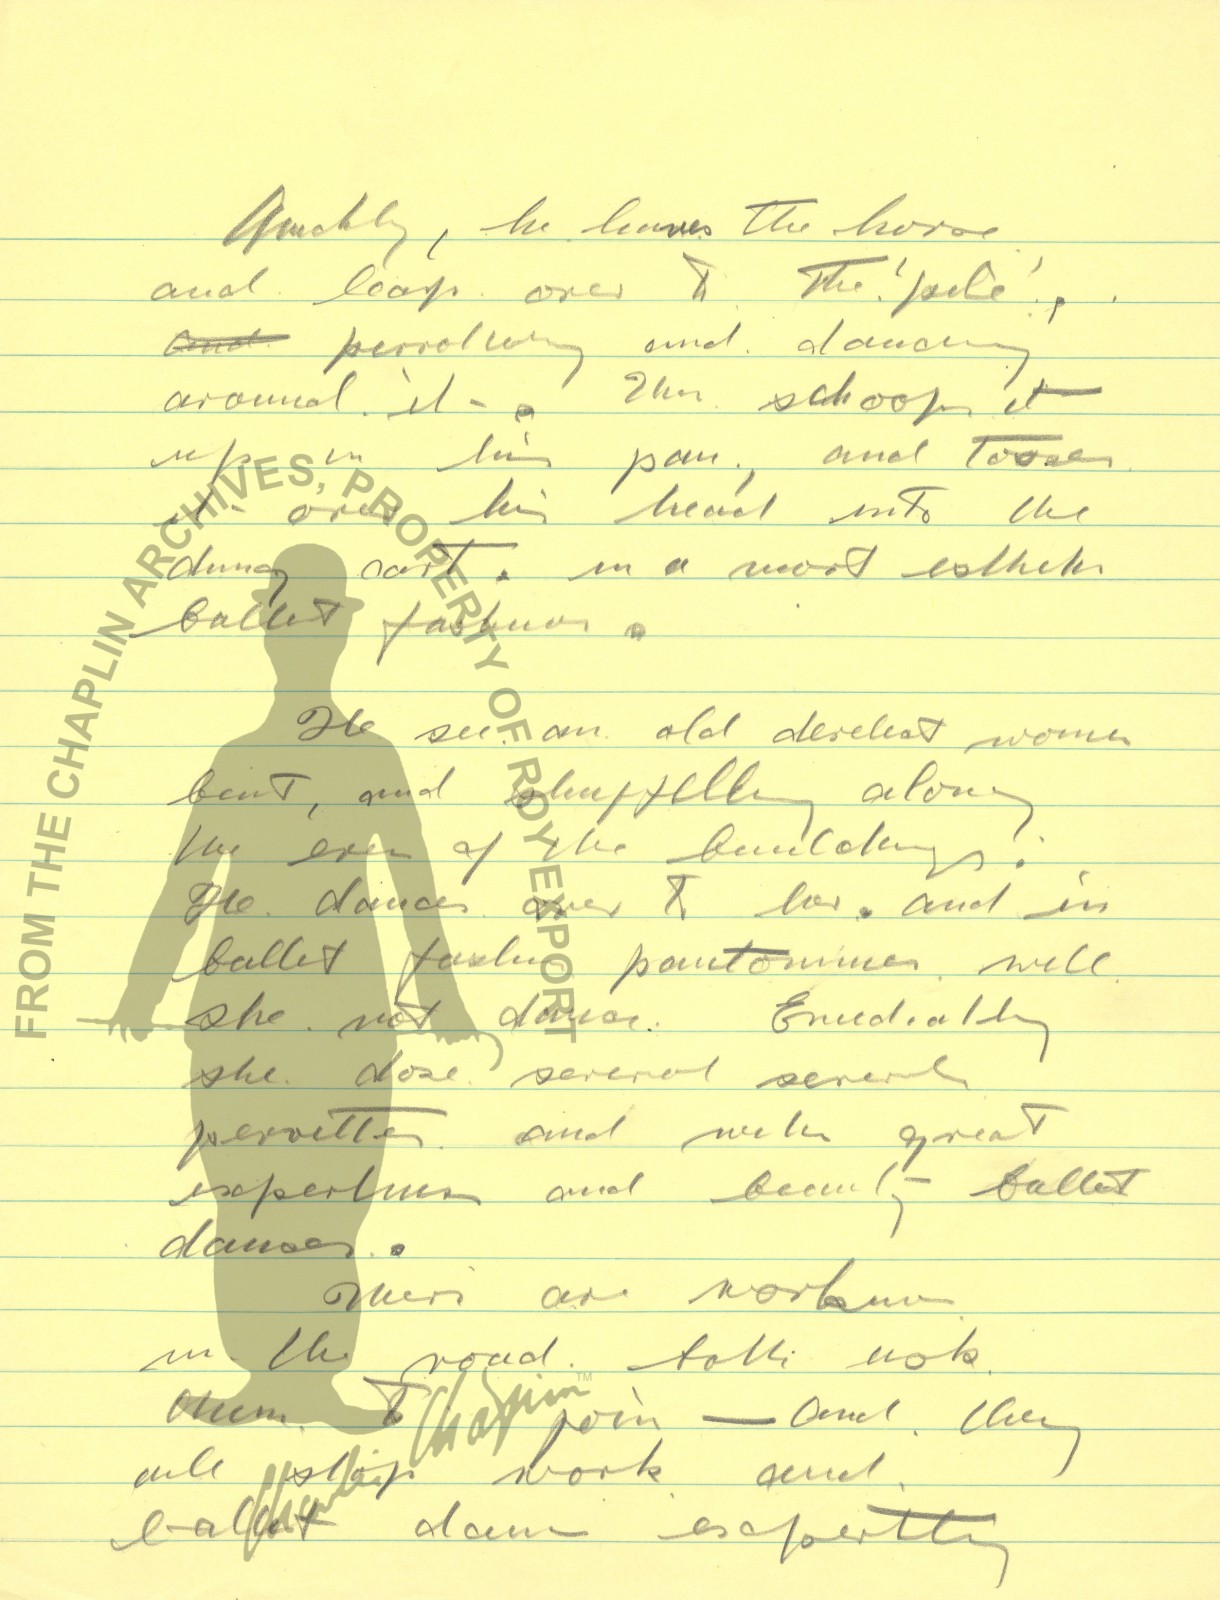 Quickly, he leaves the horse
and leap over to the 'pile',
and perrotting and dancing
around it. Then schoops it
up in his pan, and tosses
it over his head into the
dung cart. in a most esthetic
ballet fashion.
He see an old derelect women
bent, and shuffelling along
the of the buildings.
He dances over to her. and in
ballet fashion pantomimes will
she not dance. Emediatly
she dose several several
perrottes and with great
expertness and beauty ballet
dances.
There are workmen
in the road. both ask
them to join — and they
all stop work and
ballet dance expertly
FROM THE CHAPLIN ARCHIVES, PROPERTY OF ROY EXPORT
Charlie Chaplin™